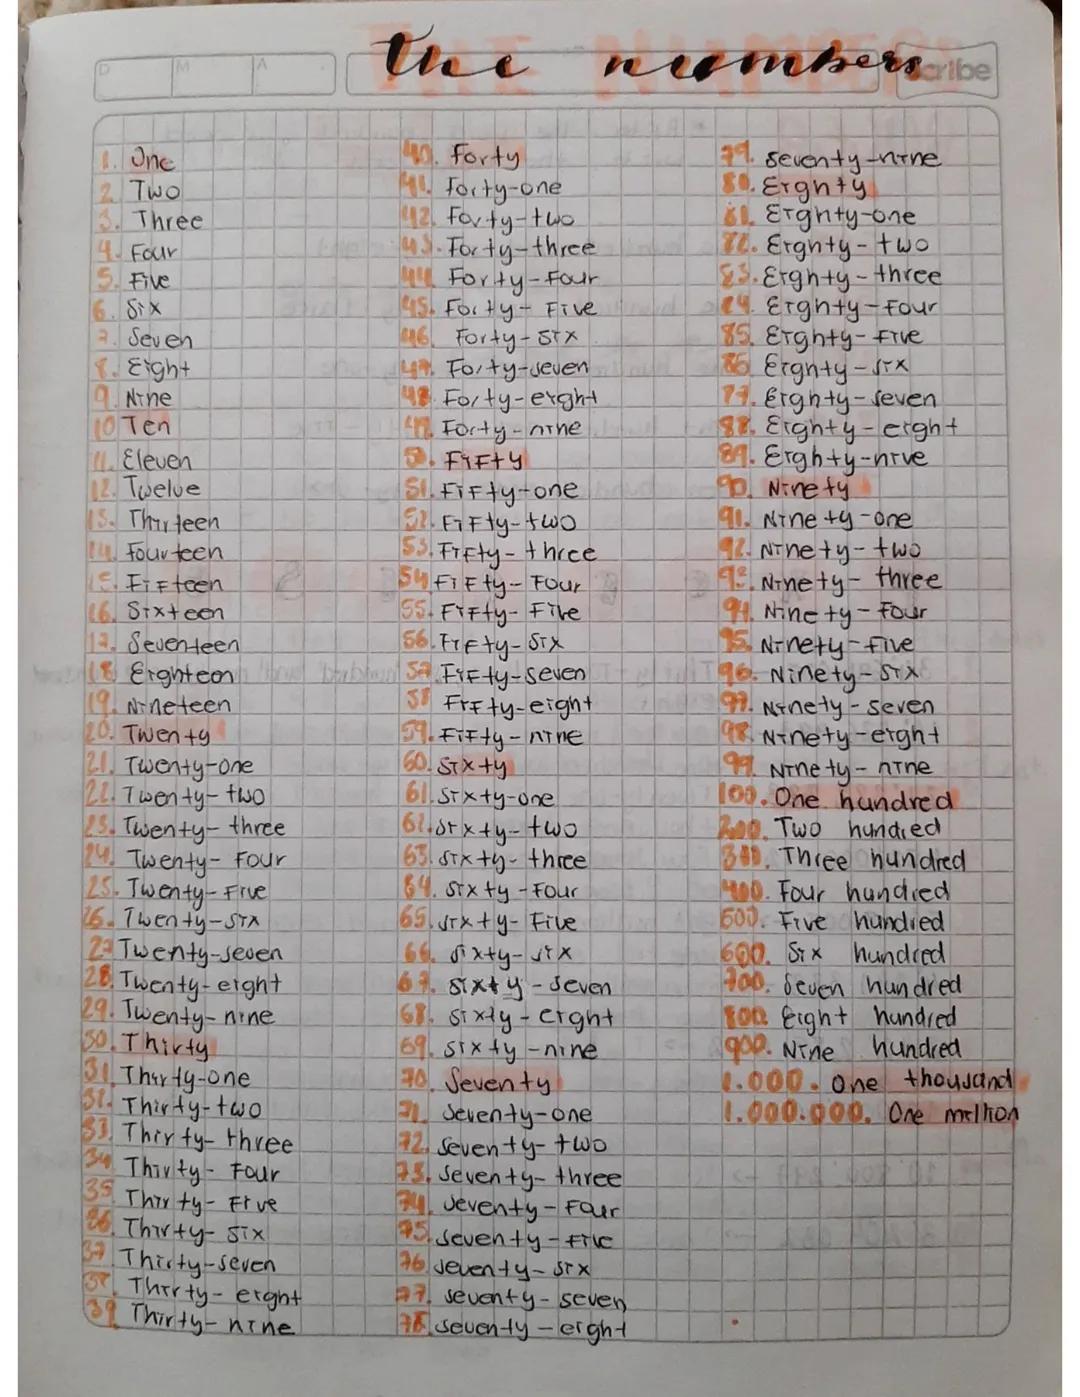 the numbers
D M A
cribe
1. One
2. Two
3. Three
4. Four
5. Five
6. Six
7. Seven
8. Eight
9. Nine
10 Ten
11. Eleven
12. Twelve
13. Thirteen
14. Fourteen
15. Fifteen
16. Sixteen
17. Seventeen
18 Eighteen
19. Nineteen
20. Twenty
21. Twenty-one
22. Twenty-two
23. Twenty-three
24. Twenty-Four
25. Twenty-Five
26. Twenty-six
27 Twenty-seven
28. Twenty-eight
29. Twenty-nine
30. Thirty
31. Thirty-one
32. Thirty-two
33. Thirty-three
34 Thirty-Four
35 Thirty-Five
36. Thirty-six
37 Thirty-seven
38. Thirty-eight
39 Thirty-nine
40. Forty
41. Forty-one
42. Forty-two
43. Forty-three
44 Forty-Four
45. Forty-Five
46. Forty-six
47. Forty-seven
48 Forty-eight
49. Forty-nine
50. Fifty
51. Fifty-one
52. Fifty-two
53. Fifty-three
54 Fifty-Four
55. Fifty-Five
56. Fifty-six
57. Fifty-seven
58 Fifty-eight
59. Fifty-nine
60. Sixty
61. Sixty-one
62. Sixty-two
63. Sixty-three
64. Sixty-Four
65. Sixty-Five
66. Sixty-six
67. Sixty-seven
68. Sixty-eight
69. Sixty-nine
70. Seventy
71. Seventy-one
72. Seventy-two
73. Seventy-three
74. Seventy-Four
75. Seventy-Five
76. Seventy-six
77. Seventy-seven
78. Seventy-eight
79. Seventy-nine
80. Eighty
81. Eighty-one
82. Eighty-two
83. Eighty-three
84. Eighty-Four
85. Eighty-Five
86 Eighty-six
77. Eighty-seven
88. Eighty-eight
89. Eighty-nive
90. Ninety
91. Ninety-one
92. Ninety-two
93. Ninety-three
94. Ninety-Four
95. Ninety-Five
96. Ninety-six
97. Ninety-seven
98. Ninety-eight
99. Ninety-nine
100. One hundred
200. Two hundred
300. Three hundred
400. Four hundred
500. Five hundred
600. Six hundred
700. Seven hundred
800. Eight hundred
900. Nine hundred
1.000. One thousand
1.000.000. One million